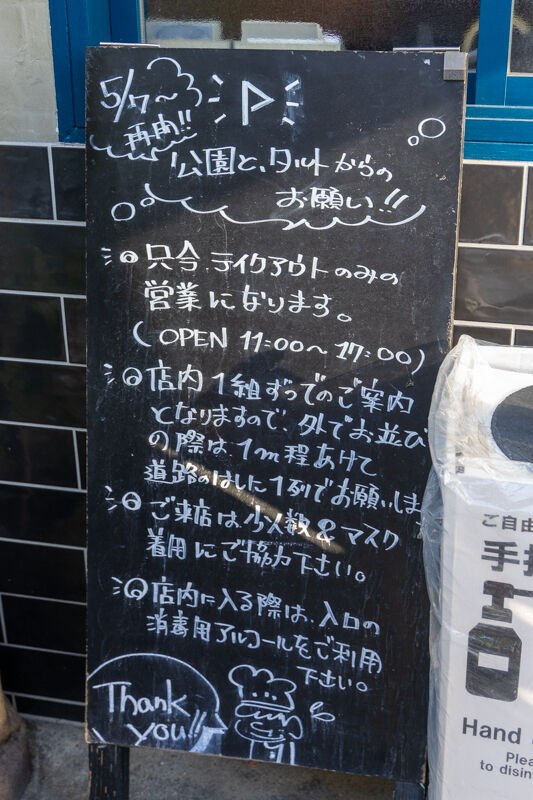 5/7〜
再開!!
P
公園と、タルトからの
お願い!!
只今、テイクアウトのみの
営業になります。
(OPEN 11:00〜17:00)
店内1組ずつでのご案内
となりますので、外でお並び
の際は1m程あけて
道路のはしに1列でお願いしま
ご来店は少人数&マスク
着用にご協力下さい。
店内に入る際は、入口の
消毒用アルコールをご利用
下さい。
Thank
you!!
ご自由
手
Hand
Plea
to disin